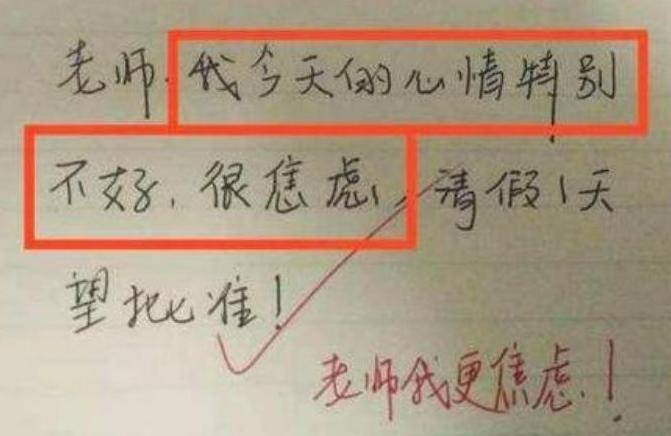 老师,我今天的心情特别
不好,很焦虑,请假1天
望批准!
老师我更焦虑!